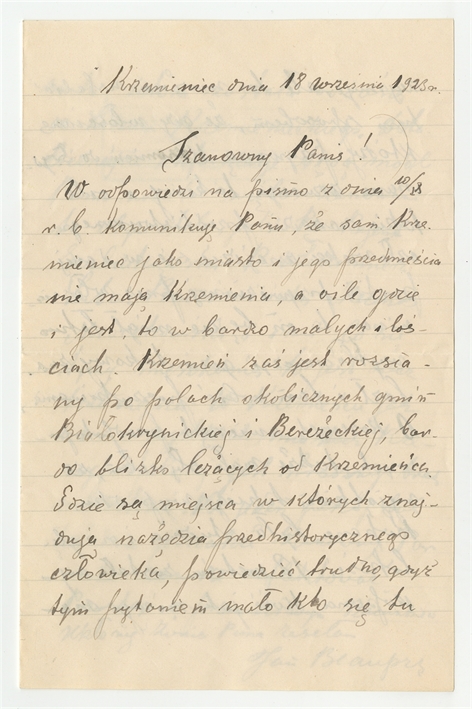 Krzemieniec dnia 18 września 1923 r.
Szanowny Panie!
W odpowiedzi na pismo z dnia 10/IX
r. b. komunikuję Panu, że sam Krze-
mieniec jako miasto i jego przedmieścia
nie mają Krzemienia, a o ile gdzie
i jest, to w bardzo małych iloś-
ciach. Krzemień zaś jest rozsia-
ny po polach okolicznych gmin
Białokrynickiej i Bereżeckiej, bar-
do blizko leżących od Krzemieńca.
Gdzie są miejsca w których znaj-
dują nażędzia przedhistorycznego
człowieka, powiedzieć trudno, gdyż
tym pytaniem mało kto się tu